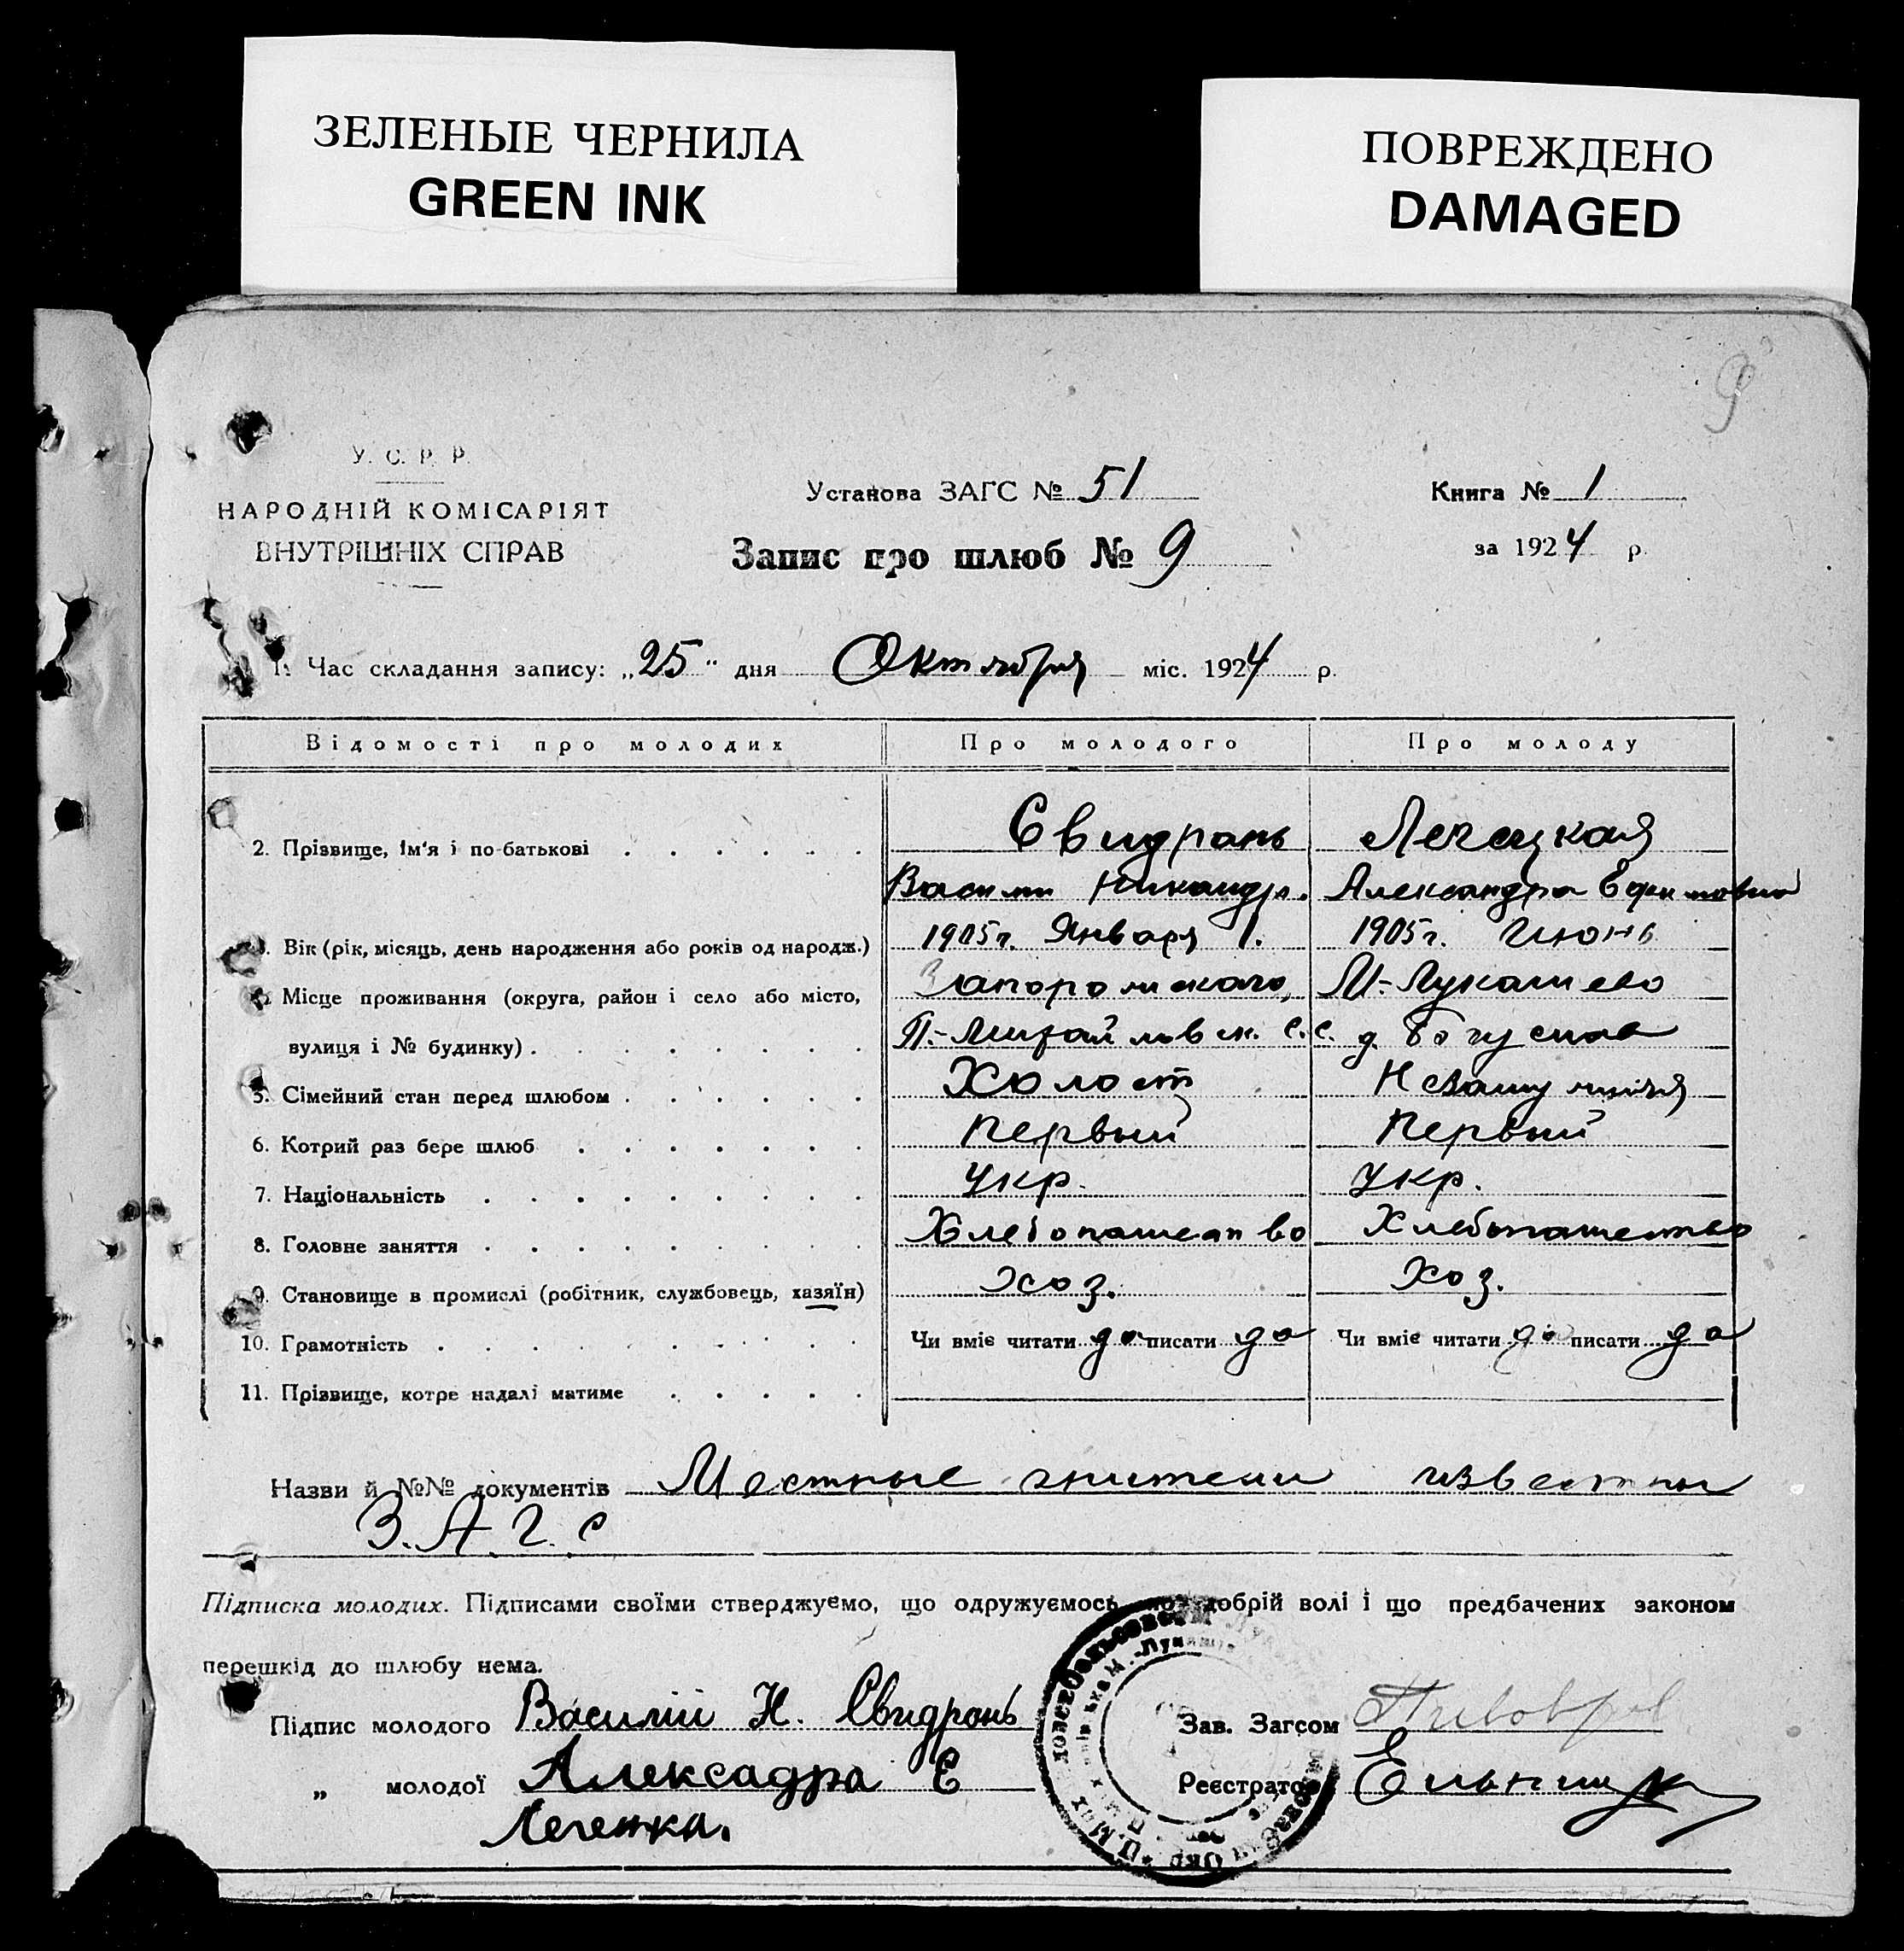 ЗЕЛЕНЫЕ ЧЕРНИЛА
GREEN INK
ПОВРЕЖДЕНО
DAMAGED
9
У. С. Р. Р.
НАРОДНІЙ КОМІСАРІЯТ
ВНУТРІШНІХ СПРАВ
Установа ЗАГС № 51
Книга № 1
Запис про шлюб № 9
за 1924 р.
1. Час складання запису: „25" дня Октября міс. 1924 р.
Відомості про молодих Про молодого Про молоду
2. Прізвище, ім'я і по-батькові Свидрань
Василий Никандр. Александра Ефимовна
3. Вік (рік, місяць, день народження або років од народж.) 1905г. Января 1. 1905г. Июнь
4. Місце проживання (округа, район і село або місто, М-Лукашево
вулиця і № будинку) П.-Михайловск. с.с. д.
5. Сімейний стан перед шлюбом Холост
6. Котрий раз бере шлюб Первый Первый
7. Національність Укр. Укр.
8. Головне заняття Хлебопашество Хлебопашество
9. Становище в промислі (робітник, службовець, хазяїн) Хоз. Хоз.
10. Грамотність Чи вміє читати да писати да Чи вміє читати да писати да
11. Прізвище, котре надалі матиме
Назви й №№ документів Местные жители известны
З.А.Г.С
Підписка молодих. Підписами своїми стверджуємо, що одружуємось по добрій волі і що предбачених законом
перешкід до шлюбу нема.
Підпис молодого Василий Н. Свидрань
Зав. Загсом
„ молодої Алексадра Е
Реєстратор